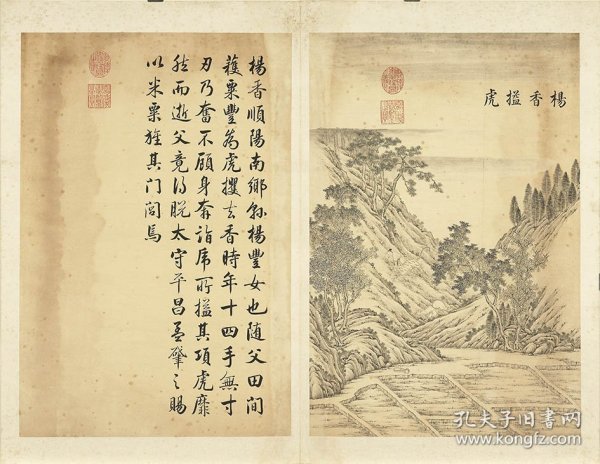 楊香搤虎
楊香順陽南鄉縣楊豐女也随父田間
穫粟豐為虎攫去香時年十四手無寸
刃乃奮不顧身奔詣虎所搤其項虎靡
然而逝父竟得脫太守平昌孟肇之賜
以米粟旌其門閭焉
孔夫子旧书网
www.kongfz.com